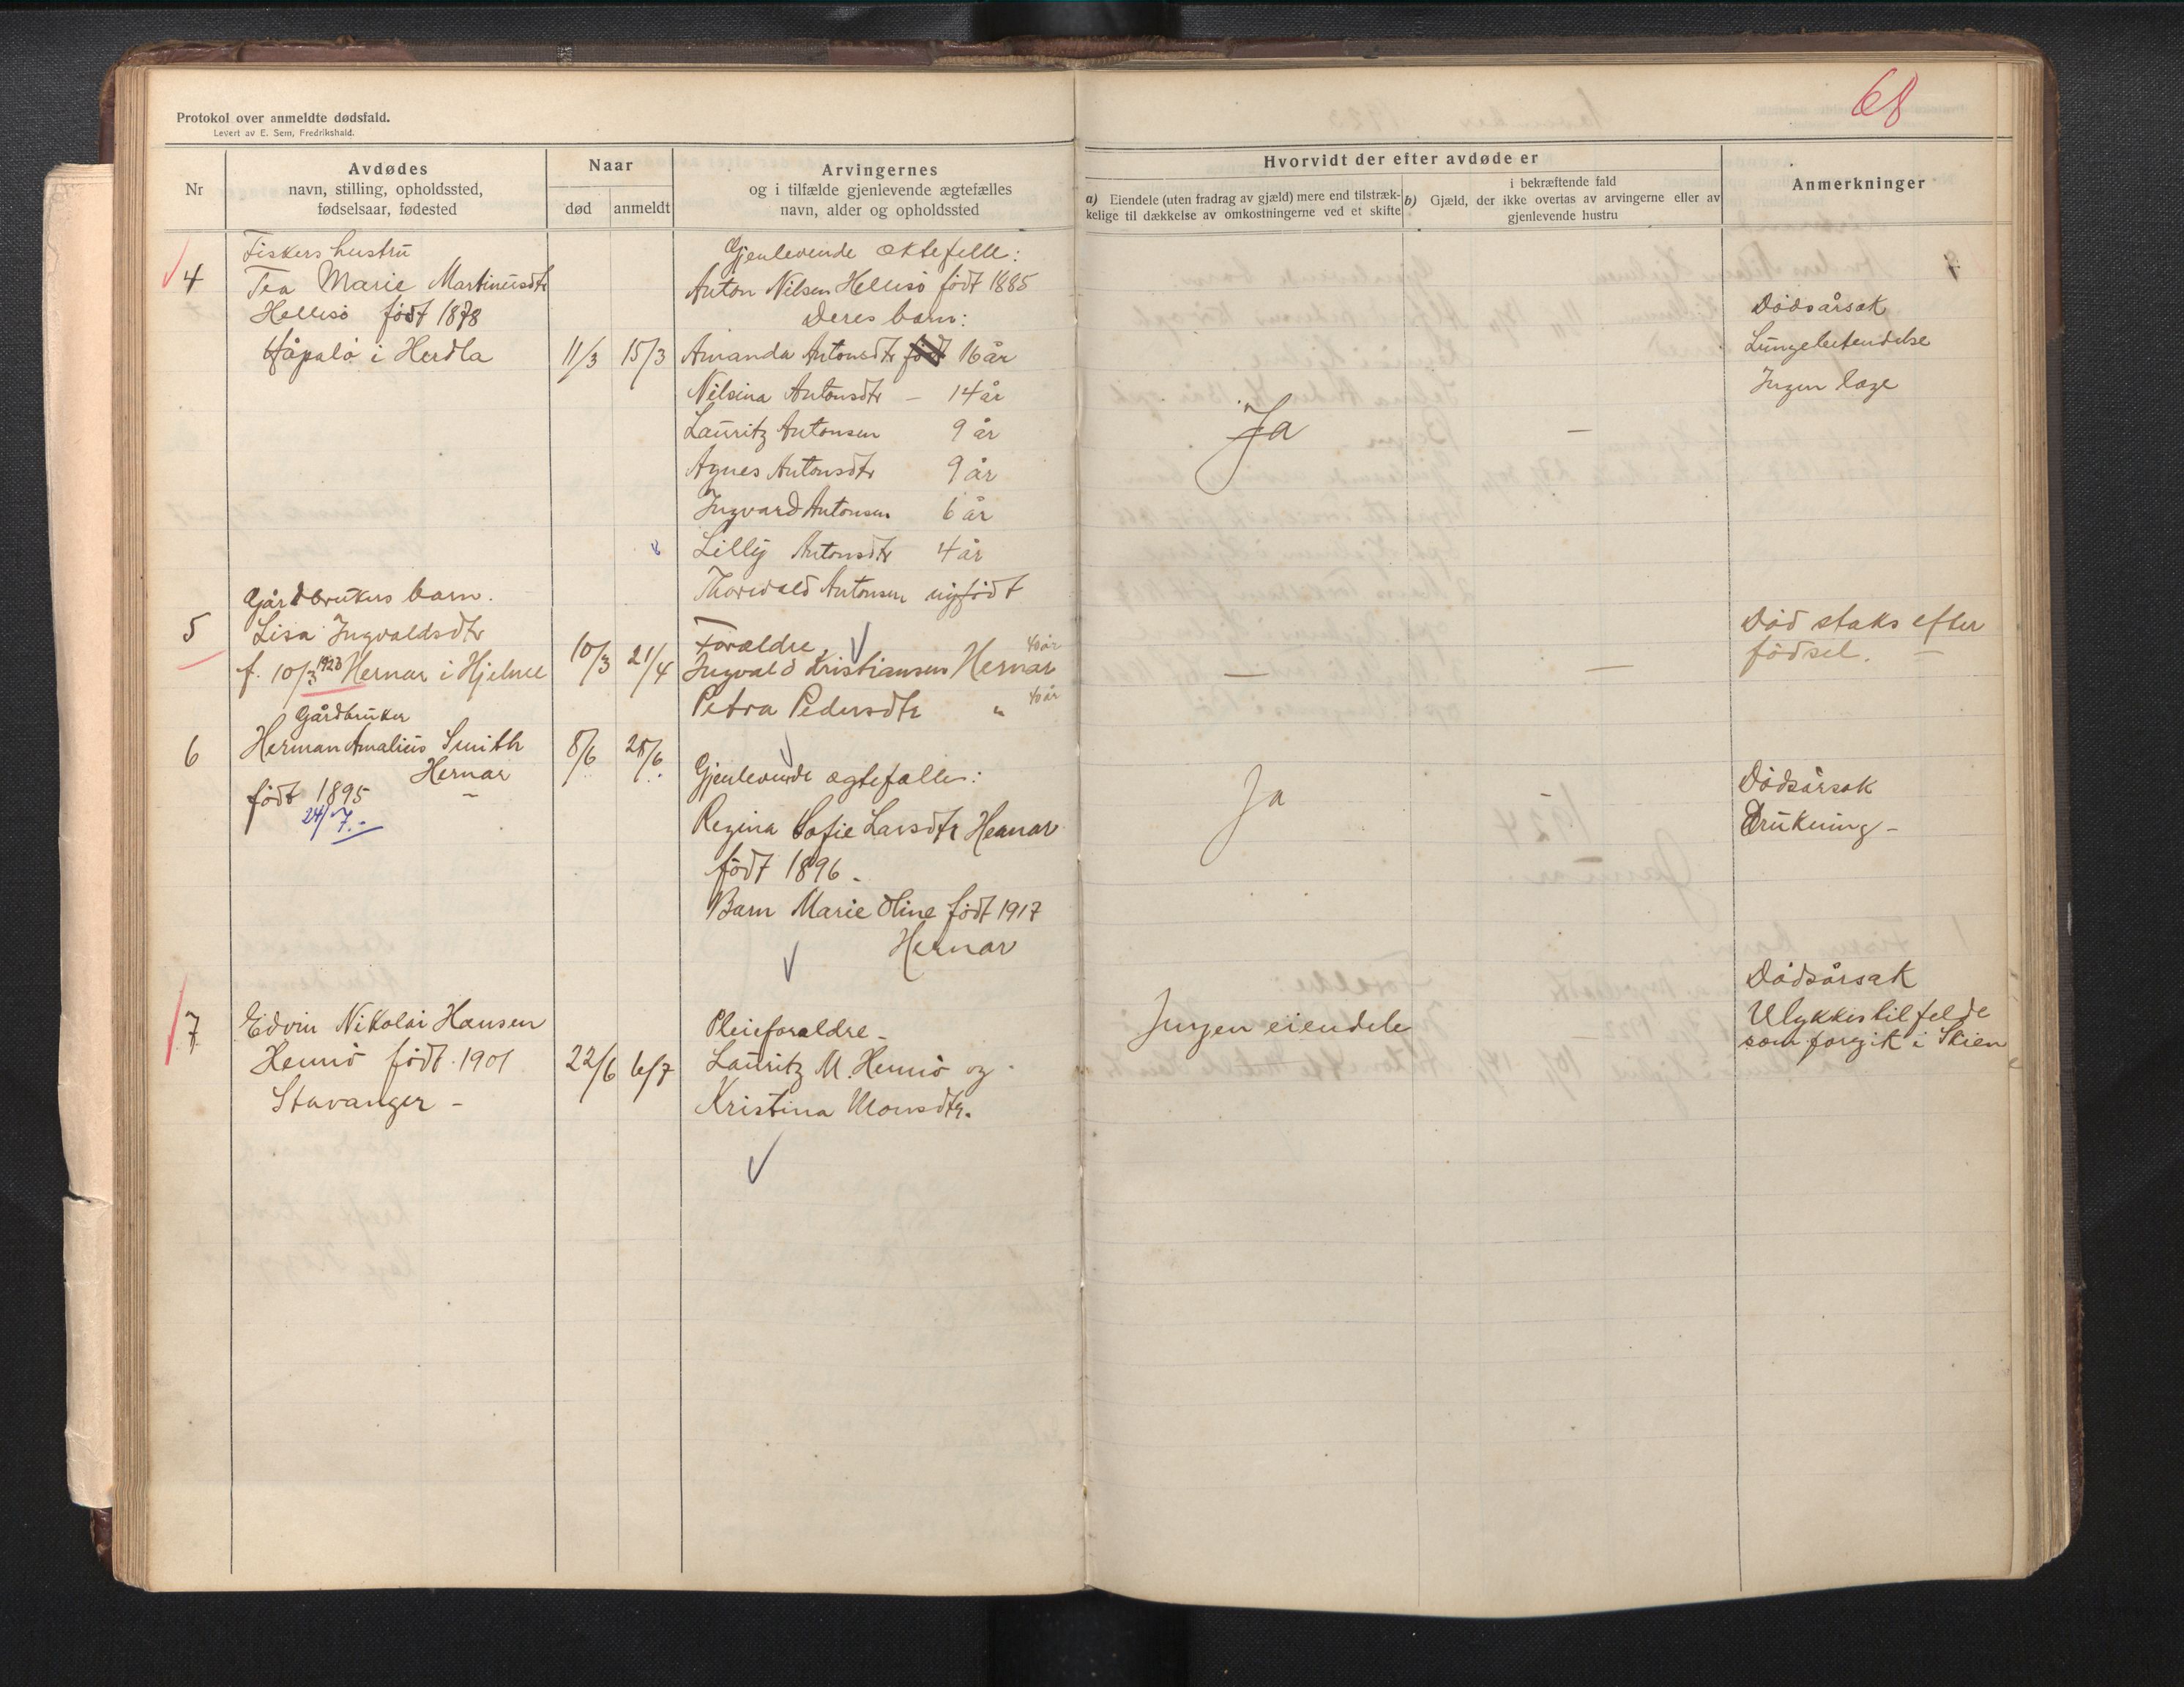 Protokol over anmeldte dødsfald.
Levert av E. Sem, Fredrikshald.
68
Nr
Avdødes
navn, stilling, opholdssted,
fødselsaar, fødested
Naar
død
anmeldt
Arvingernes
og i tilfælde gjenlevende ægtefælles
navn, alder og opholdssted
Hvorvidt der efter avdøde er
a) Eiendele (uten fradrag av gjæld) mere end tilstræk-
kelige til dækkelse av omkostningerne ved et skifte
i bekræftende fald
b) Gjæld, der ikke overtas av arvingerne eller av
gjenlevende hustru
Anmerkninger
4
Fiskers hustru
Tea Marie Martinusdtr
Hellisö født 1878
i Herdla
11/3
15/3
Gjenlevende ektefelle:
Anton Nilsen Hellisö født 1885
Deres barn:
Amanda Antonsdtr født 16 år
Nilsina Antonsdtr – 14 år
Lauritz Antonsen 9 år
Agnes Antonsdtr 9 år
Ingvard Antonsen 6 år
Lilly Antonsdtr 4 år
Thorvald Antonsen nyfødt
Ja
–
Dödsårsak
Lungebetendelse
Ingen læge
5
Gårdbrukers barn.
Lisa Ingvaldsdtr
f. 10/3 1923 Hernar i Hjelme
10/3
21/4
Forældre,
Ingvald Kristiansen Hernar 40 år
Petra Pedersdtr " 40 år
–
–
Död straks efter
födsel.
6
Gårdbruker
Herman Amalius Smith
Hernar
født 1895
24/7.-
8/6
28/6
Gjenlevende ægtefælle:
Regina Sofie Larsdtr Hernar
født 1896.
Barn Marie Oline født 1917
Hernar
Ja
Dödsårsak
Drukning –
7
Edvin Nikolai Hansen
Hennö født 1901
Stavanger –
22/6
6/7
Pleieforældre –
Lauritz M. Hennö og
Kristina Monsdtr.
Ingen eiendele
Dödsårsak
Ulykkestilfelde
som foregik i Skien